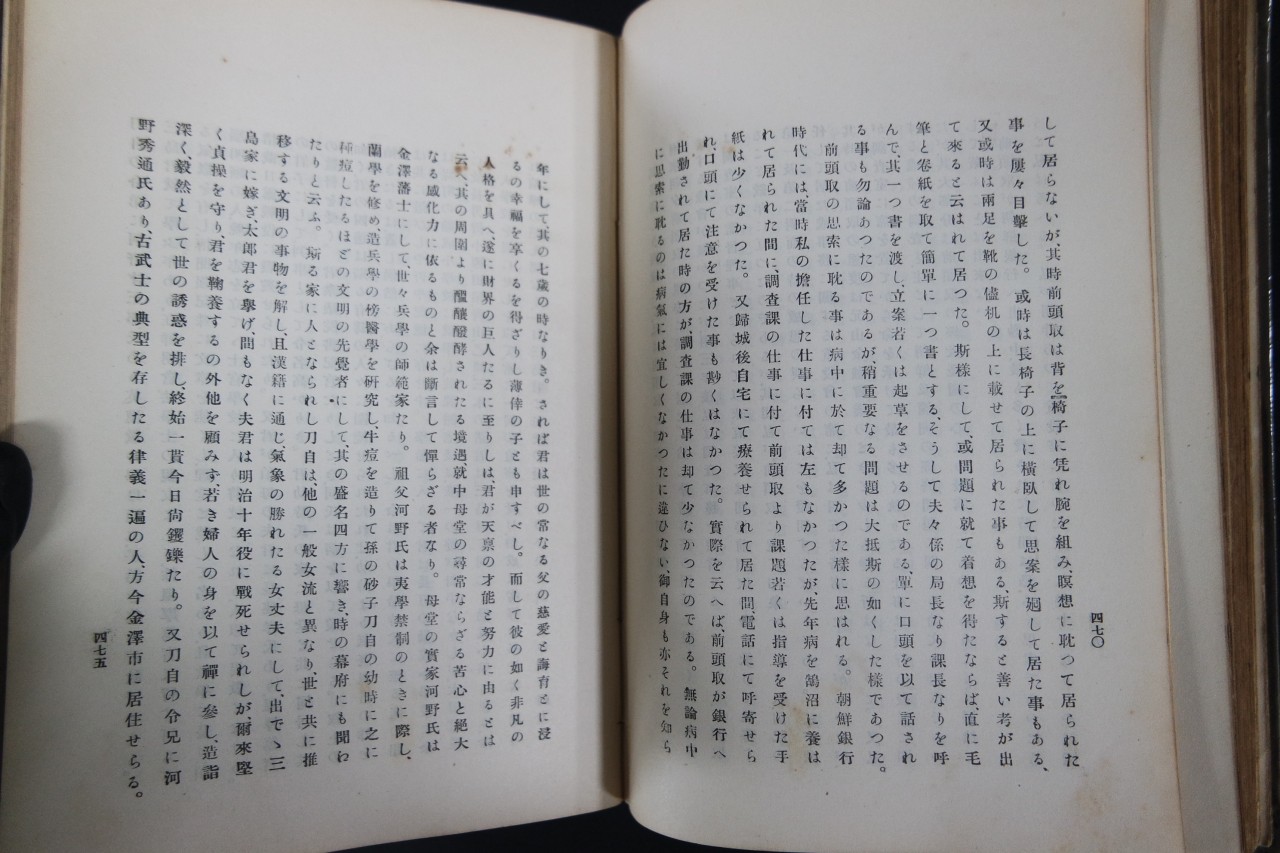 四七〇
して居らないが、其時前頭取は背を椅子に凭れ腕を組み、瞑想に耽つて居られた
事を屢々目擊した。或時は長椅子の上に橫臥して思案を廻して居た事もある、
又或時は兩足を靴の儘机の上に載せて居られた事もある、斯すると善い考が出
て來ると云はれて居つた。斯樣にして、或問題に就て着想を得たならば、直に毛
筆と卷紙を取て簡單に一つ書とする、そうして夫々係の局長なり課長なりを呼
んで、其一つ書を渡し、立案若くは起草をさせるのである、單に口頭を以て話され
る事も勿論あつたのであるが稍重要なる問題は大抵斯の如くした樣であつた。
前頭取の思索に耽る事は病中に於て却て多かつた樣に思はれる。朝鮮銀行
時代には、當時私の擔任した仕事に付ては左もなかつたが、先年病を鵠沼に養は
れて居られた間に、調査課の仕事に付て前頭取より課題若くは指導を受けた手
紙は少くなかつた。又歸城後自宅にて療養せられて居た間、電話にて呼寄せら
れ口頭にて注意を受けた事も尠くはなかつた。實際を云へば前頭取が銀行へ
出勤されて居た時の方が、調査課の仕事は却て少なかつたのである。無論病中
に思索に耽るのは病氣には宜しくなかつたに違ひない、御自身も亦それを知ら
年にして、其の七歲の時なりき。されば君は世の常なる父の慈愛と誨育とに浸
るの幸福を享くるを得ざりし薄倖の子とも申すべし。而して彼の如く非凡の
人格を具へ、遂に財界の巨人たるに至りしは、君が天禀の才能と努力に由るとは
云へ、其の周圍より醞釀醱酵されたる境遇、就中母堂の尋常ならざる苦心と絕大
なる感化力に依るものと余は斷言して憚らざる者なり。母堂の實家河野氏は
金澤藩士にして、世々兵學の師範家たり。祖父河野氏は夷學禁制のときに際し、
蘭學を修め、造兵學の傍醫學を硏究し、牛痘を造りて孫の砂子刀自の幼時に之に
種痘したるほどの文明の先覺者にして、其の盛名四方に響き、時の幕府にも聞わ
たりと云ふ。斯る家に人となられし刀自は、他の一般女流と異なり、世と共に推
移する文明の事物を解し、且漢籍に通じ氣象の勝れたる女丈夫にして、出でゝ三
島家に嫁ぎ、太郎君を擧げ、間もなく夫君は明治十年役に戰死せられしが、爾來堅
く貞操を守り、君を鞠養するの外他を顧みす、若き婦人の身を以て禪に參し、造詣
深く、毅然として世の誘惑を排し、終始一貫今日尙钁鑠たり。又刀自の令兄に河
野秀通氏あり古武士の典型を存したる律義一遍の人、方今金澤市に居住せらる。
四七五